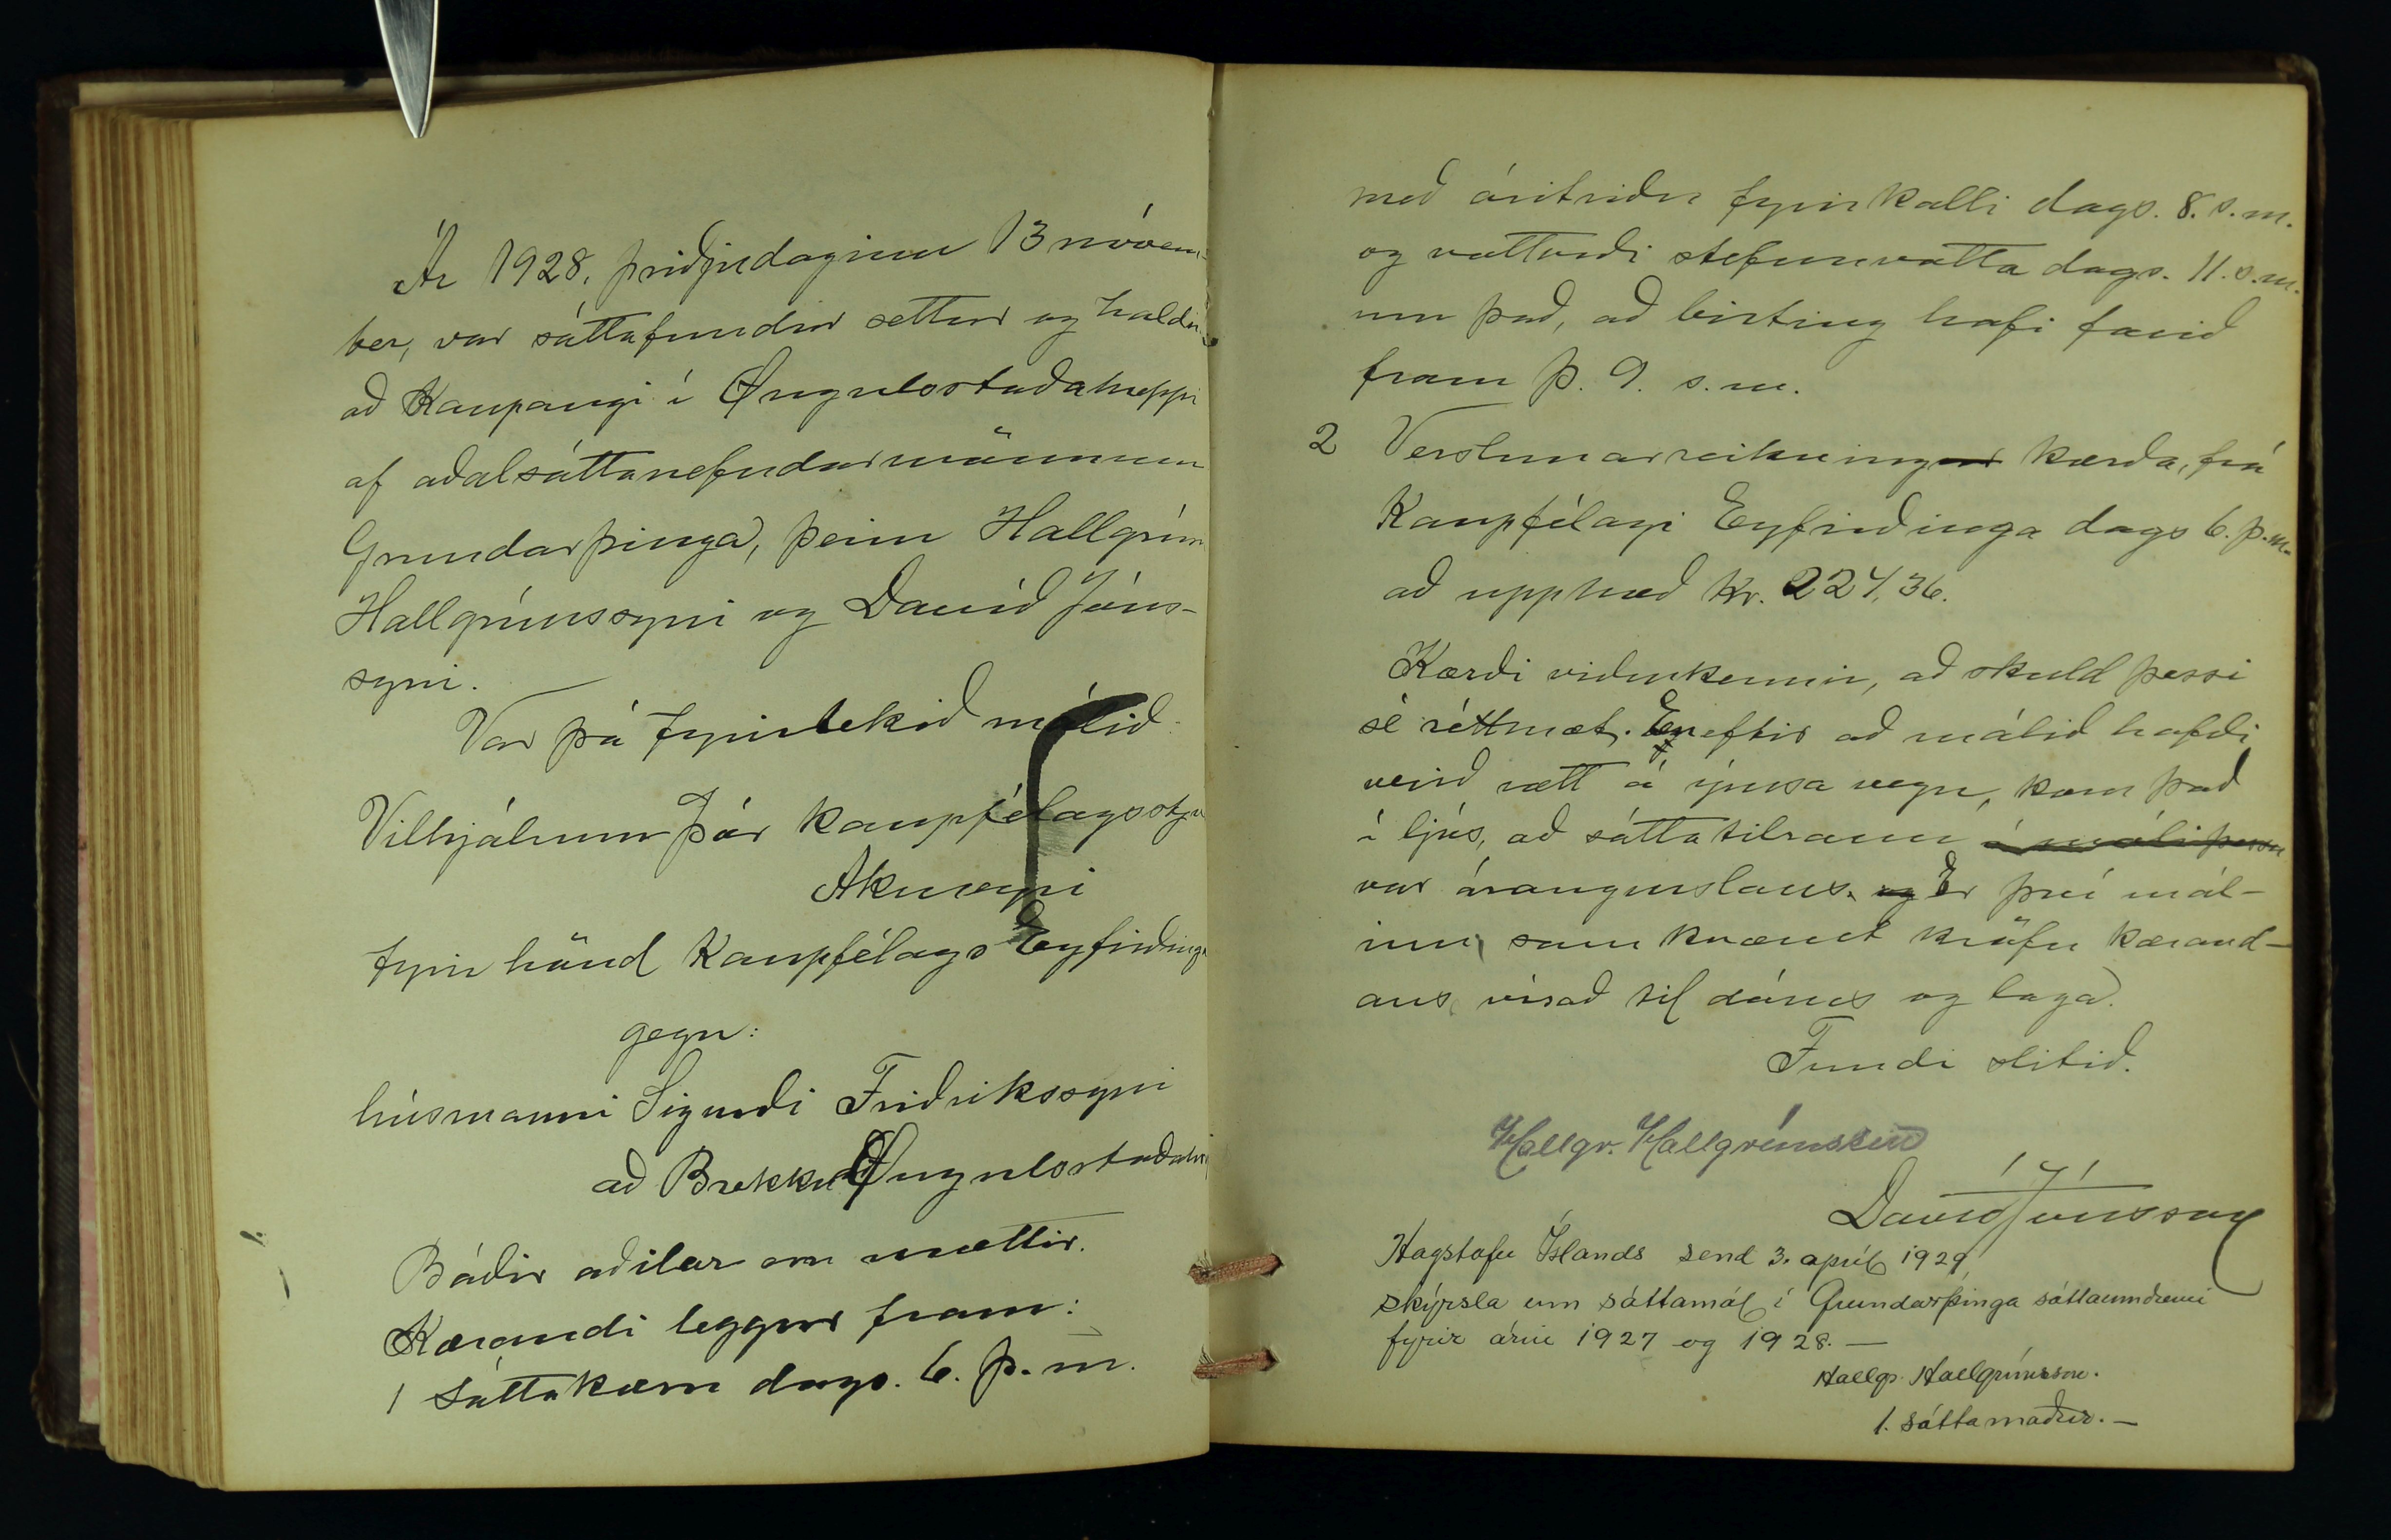 Ár 1928, þriðjudaginn 13 nóvem-
ber, var sáttafundur settur og haldin
að Kaupangi í Öngulsstaðahreppi
af aðalsáttanefndarmönnum
Grundarþinga, þeim Hallgrím
Hallgrímssyni og Davíð Jóns-
syni.
Var þá fyrirtekið málið
Vilhjálmur Þór kaupfélagsstj
Akureyri
fyrir hönd Kaupfélags Eyfirðinga
gegn:
húsmanni Sigurði Friðrikssyni
að Brekku Öngulsstaðahr
Báðir aðilar eru mættir.
Kærandi leggur fram:
1 Sáttakæru dags. 6. þ. m.
með áritriðu fyrirkalli dags. 8. s.m.
og vottorði stefnuvotta dags. 11. s.m.
um það, að birting hafi farið
fram þ. 9. s. m.
2 Verslunarreikning kærða, frá
Kaupfélagi Eyfirðinga dags 6. þ.m.
að upphæð kr. 224,36.
Kærði viðurkennir, að skuld þessi
sé réttmæt. En eftir að málið hafði
verið rætt á ýmsa vegu, kom það
í ljós, að sáttatilraun á máli þessu
var árangurslaus. og Er því mál-
inu, samkvæmt kröfu kærand-
ans, vísað til dóms og laga.
Fundi slitið.
Hallgr. Hallgrímsson
Davíð Jónsson
Hagstofu Íslands send 3. apríl 1929
skýrsla um sáttamál í Grundarþinga sáttaumdæmi
fyrir árin 1927 og 1928. —
Hallgr. Hallgrímsson.
1. sáttamaður. —